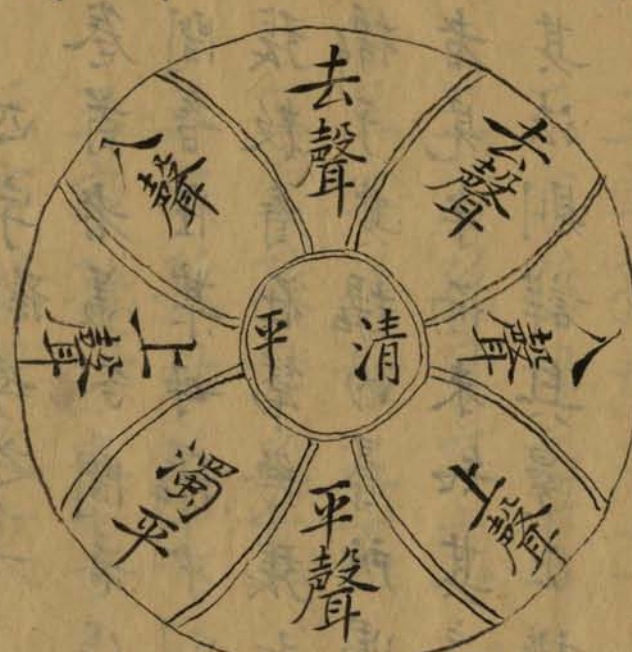 去聲
去聲
入聲
上聲
平聲
濁平
上聲
入聲
清平